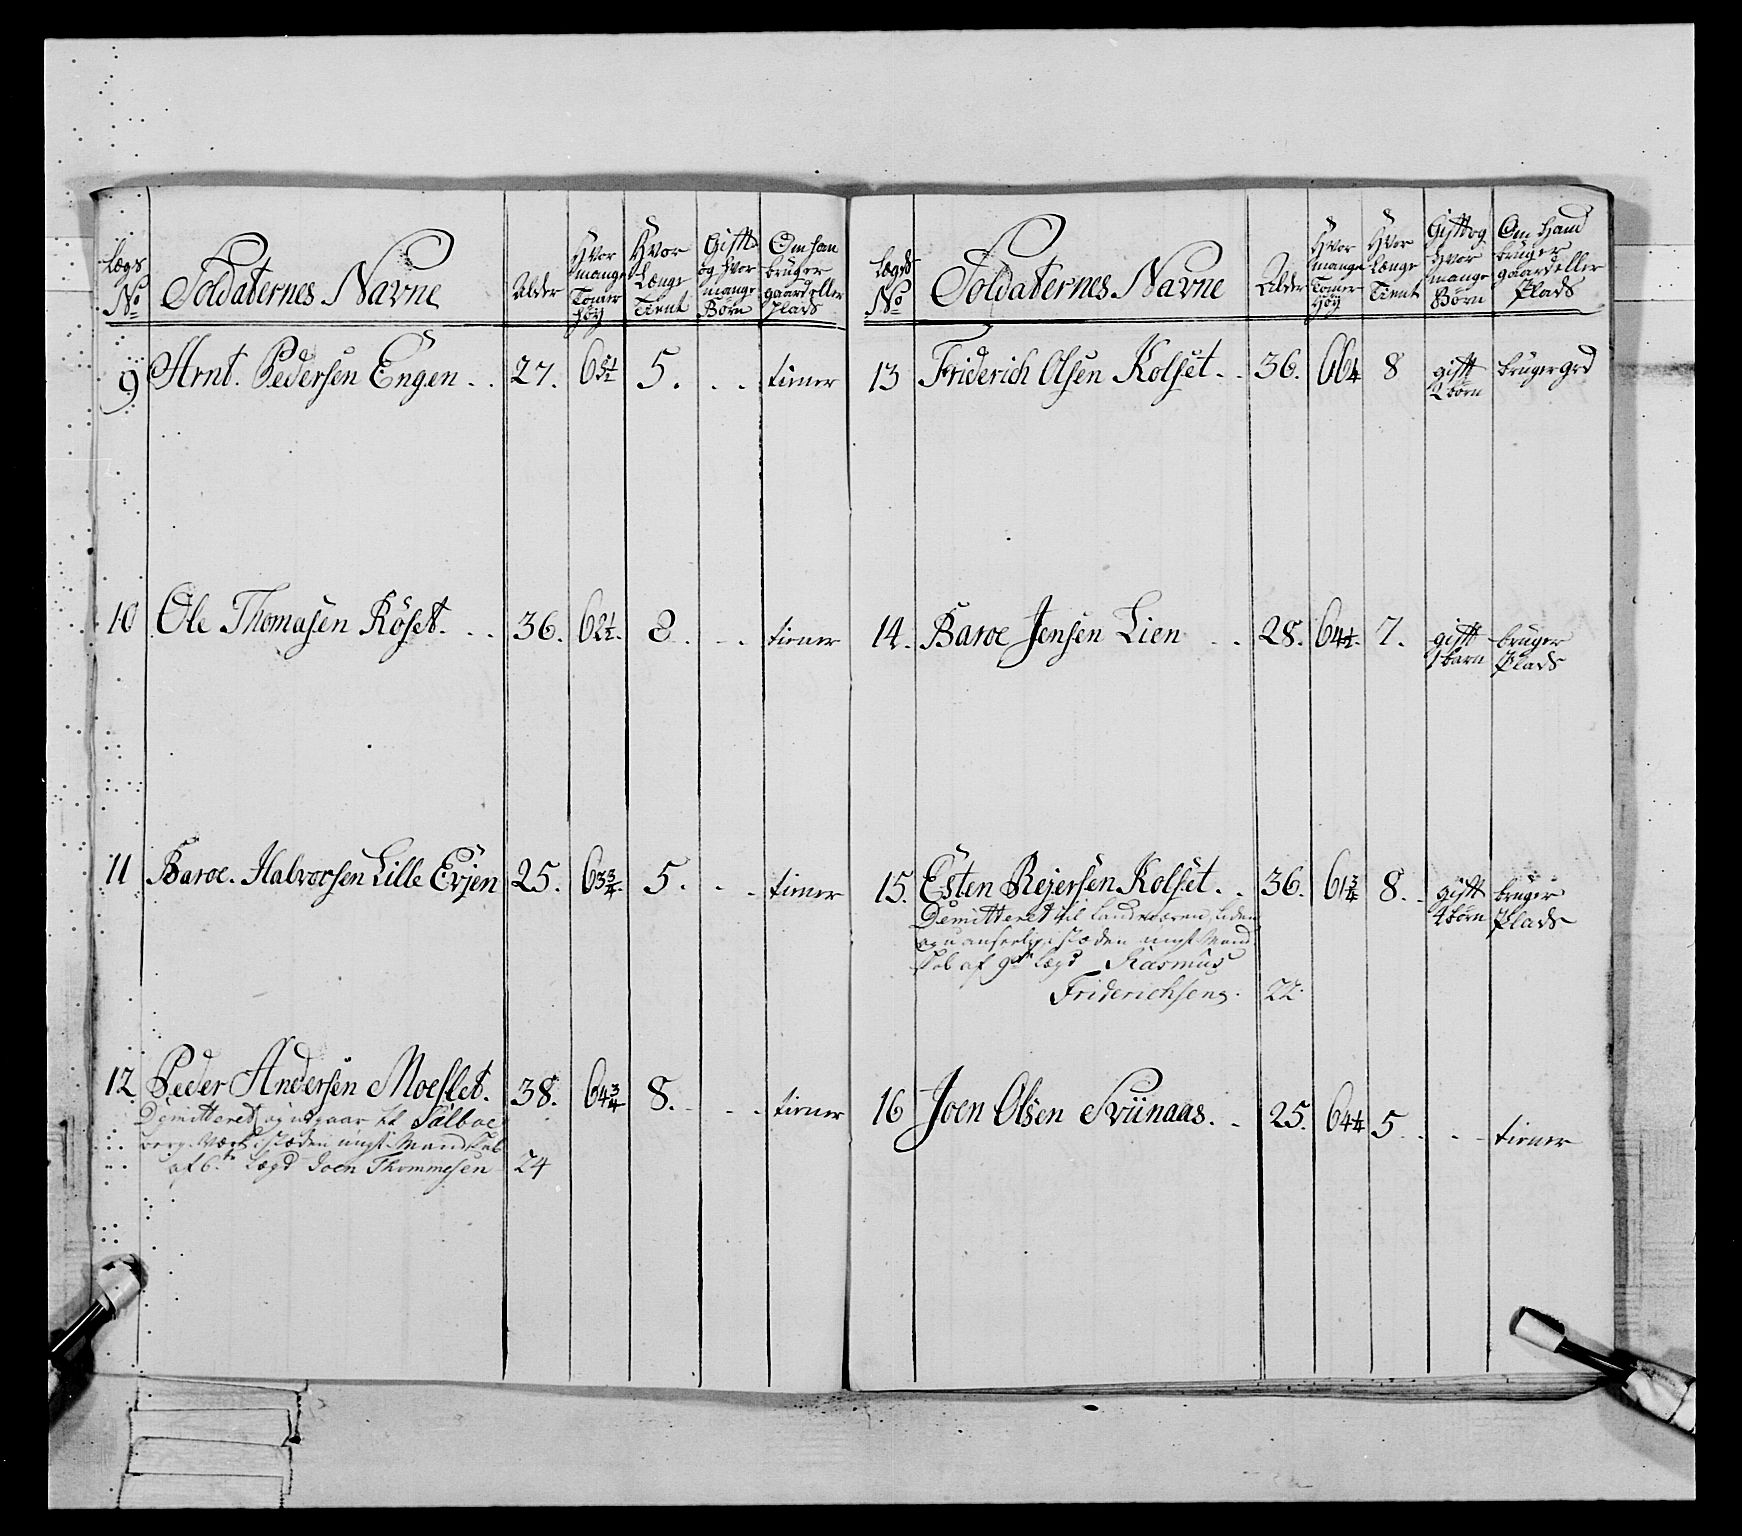 Lægs No
Soldaternes Navne
Alder
Hvor mange Tomer høy
Hvor Længe Tient
Gift og hvor mange Børn
Om han bruger gaard eller Plads
9 Arnt. Pedersen Engen . . 27. 5. . . tiener
10 Ole Thomasen Röset. . . 36. 62½. 8. . . tiener
11 Baroe. Halvorsen Lille Evjen 25. 63¾. 5. . . tiener
12 Peder Andersen Moeslet. 38. 64¾ 8. . . tiener
Demitteret og indgaar til Sælboe
verg. Værk, i stæden ungt Mandskab
af 6.te Lægd Joen Thommesen 24
Lægds No
Soldaternes Navne
Alder
Hvor mange Tomer Høy
Hvor Længe Tient
Gift og Hvor mange Børn
Om Hand bruger gaard eller Plads
13 Friderich Olsen Kolset. . 36. 66¼ 8 gift 2 børn bruger grd
14. Baroe Jensen Lien . . 28. 64½. 7. gift 1 barn bruger Plads
15. Esten Rejersen Kolset. . 36. 61¾ 8. . gift 4 børn bruger Plads
Demitteret til Landværen, liden
og uanseelig, i stæden ungt Mand
skab af 9de Lægd Rasmus
Friderichsen 22.
16 Joen Olsen Sviinaas. . 25. 64¼ 5 . . . tiener